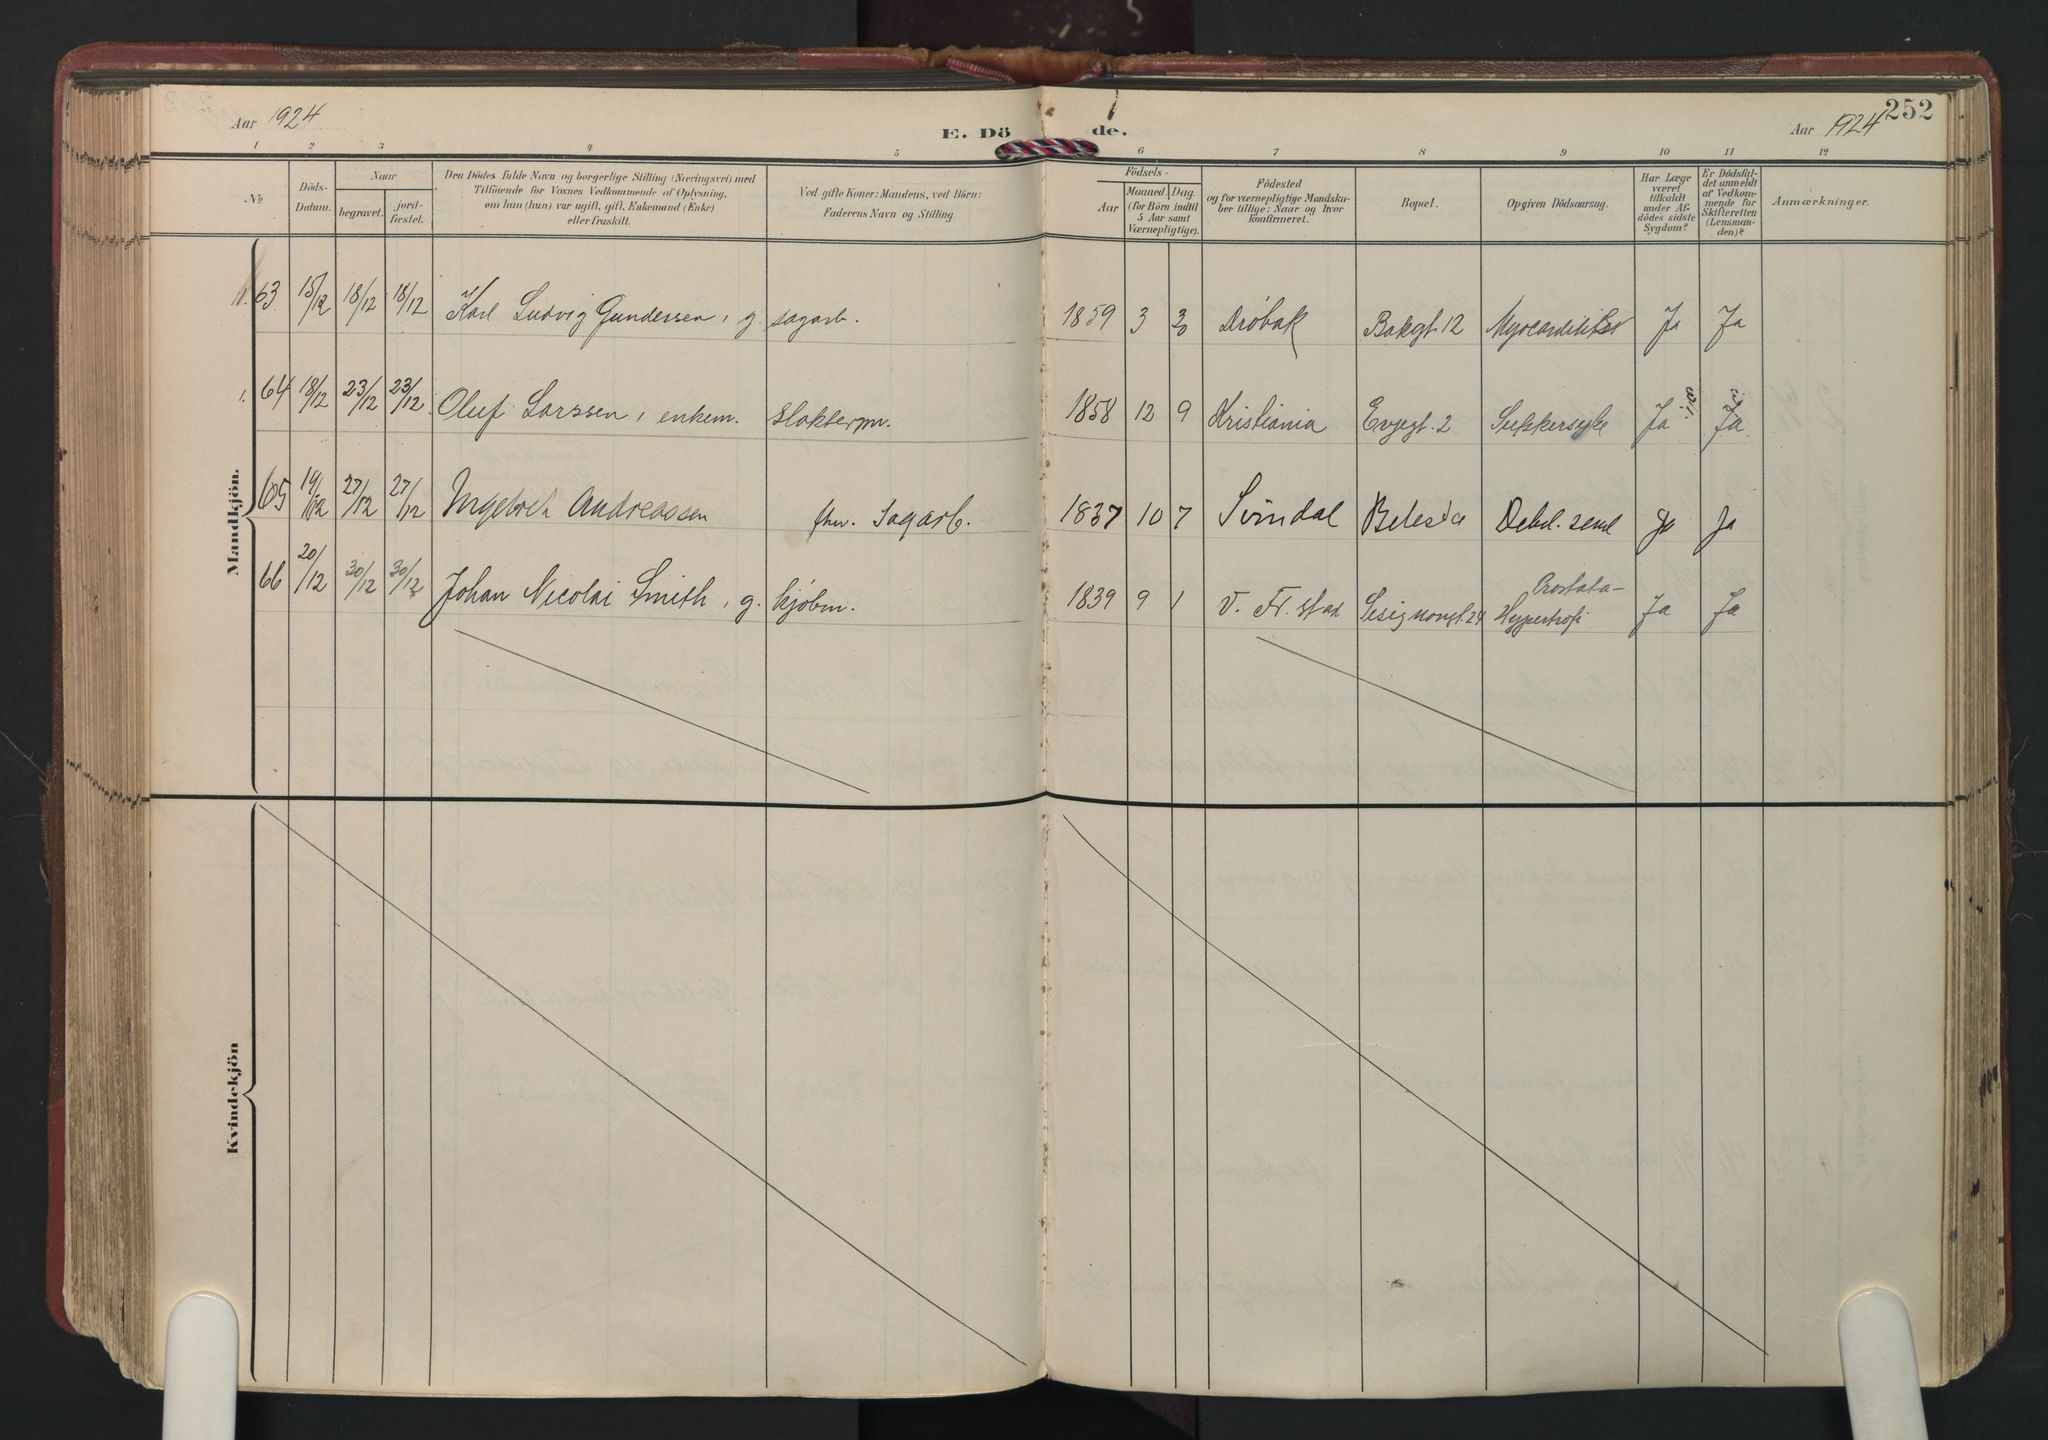 252
Aar 1924
E. Döde.
Aar 1924
1 2 3 4 5 6 7 8 9 10 11 12
No
Döds-Datum.
Naar
begravet.
jord-fæstet.
Den Dödes fulde Navn og borgerlige Stilling (Næringsvei) med
Tilföiende for Voxnes Vedkommende af Oplysning,
om han (hun) var ugift, gift, Enkemand (Enke)
eller fraskilt.
Ved gifte Koner: Mandens, ved Börn:
Faderens Navn og Stilling.
Födsels-
Aar
Maaned. Dag.
(for Börn indtil
5 Aar samt
Værnepligtige).
Födested
og for værnepligtige Mandsku-
ber tillige: Naar og hvor
konfirmeret.
Bopæl.
Opgiven Dödsaarsag.
Har Læge
været
tilkaldt
under Af-
dödes sidste
Sygdom?
Er Dödsfal-
det anmeldt
af Vedkom-
mende for
Skifteretten
(Lensman-
den)?
Anmærkninger.
Mandkjön.
63 15/12 18/12 18/12 Karl Ludvig Gundersen, g. sagarb. 1859 3 30 Drøbak Bakgt. 12 Myocarditis Ja Ja
1. 64 18/12 23/12 23/12 Oluf Larssen, enkem. slakterm. 1858 12 9 Kristiania Evjegt. 2 Sukkersyke Ja Ja
65 19/12 27/12 27/12 Ingebret Andreassen fhv. Sagarb. 1837 10 7 Sørndal Betesda Debil. senil Ja Ja
66 20/12 30/12 30/12 Johan Nicolai Smith, g. kjøbm. 1839 9 1 V. Fr. stad Prostata-
Hypertrofi Ja Ja
Kvindekjön